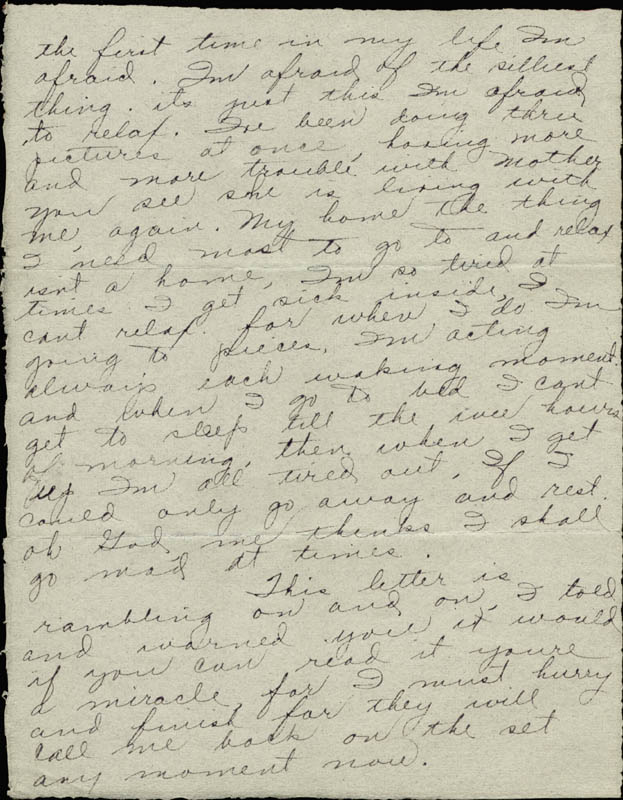 the first time in my life I'm
afraid. I'm afraid of the silliest
thing. its just this I'm afraid
to relax. I've been doing three
pictures at once, having more
and more trouble with mother
you see she is living with
me again. My home the thing
I need most to go to and relax
isn't a home, I'm so tired at
times I get sick inside, I
cant relax for when I do I'm
going to pieces, I'm acting
always each waking moment.
and when I go to bed I cant
get to sleep till the wee hours
of morning, then when I get
up I'm all tired out, If I
could only go away and rest.
oh God me thinks I shall
go mad at times.
This letter is
rambling on and on, I told
and warned you it would
if you can read it youre
a miracle, for I must hurry
and finish for they will
call me back on the set
any moment now.